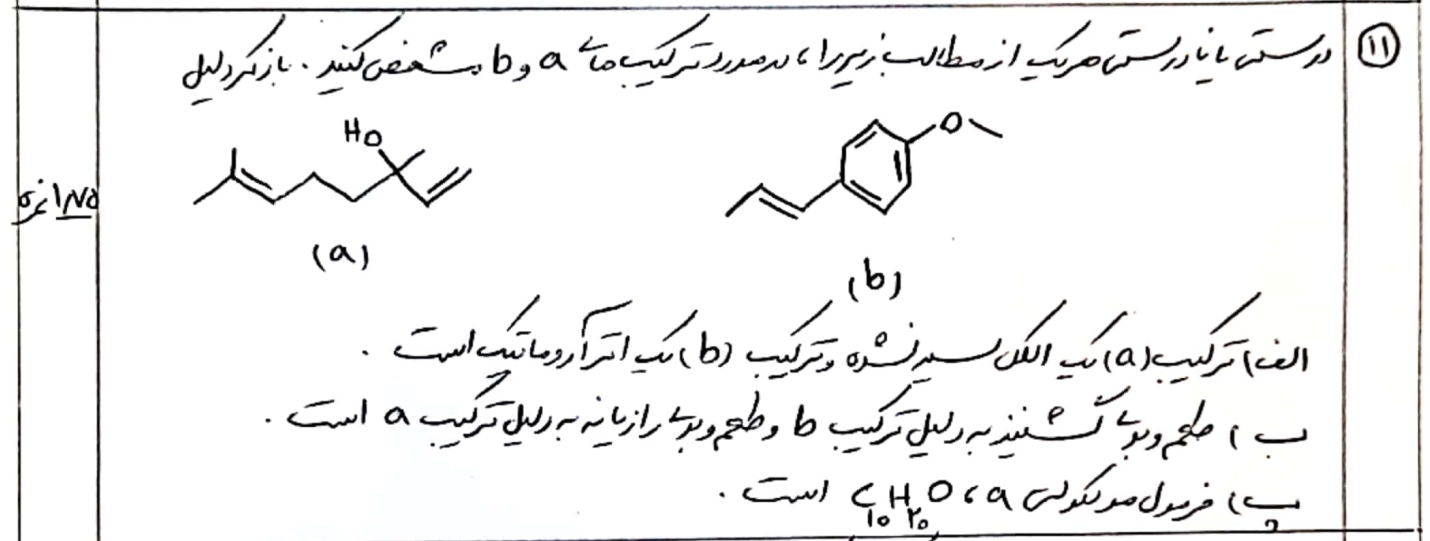 ۱۱ درستی یا نادرستی هریک از مطالب زیر را، در مورد ترکیب های a و b مشخص کنید. با ذکر دلیل
HO
O
(a)
(b)
۱٫۷۵ نمره
الف) ترکیب (a) یک الکل سیرنشده و ترکیب (b) یک اتر آروماتیک است.
ب) طعم و بوی گشنیز به دلیل ترکیب b و طعم و بوی رازیانه به دلیل ترکیب a است.
پ) فرمول مولکولی a، C۱۰H۲۰O است.